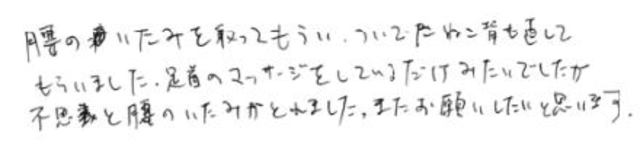 腰のいたみを取ってもらい、ついでにねこ背も直して
もらいました。足首のマッサージをしているだけみたいでしたが
不思議と腰のいたみがとれました。またお願いしたいと思います。